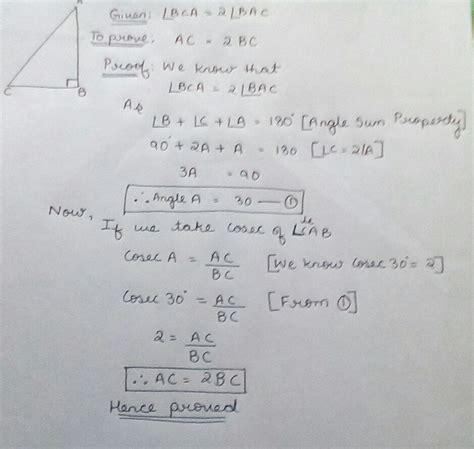 A
C
B
Given: ∠BCA = 2∠BAC
To prove: AC = 2BC
Proof: We know that
∠BCA = 2∠BAC
As
∠B + ∠C + ∠A = 180° [Angle Sum Property]
90° + 2A + A = 180 [∠C = 2∠A]
3A = 90
∴ Angle A = 30 — ①
Now,
If we take cosec of ∠CAB
Cosec A = AC/BC [We know Cosec 30° = 2]
Cosec 30° = AC/BC [From ①]
2 = AC/BC
∴ AC = 2BC
Hence proved